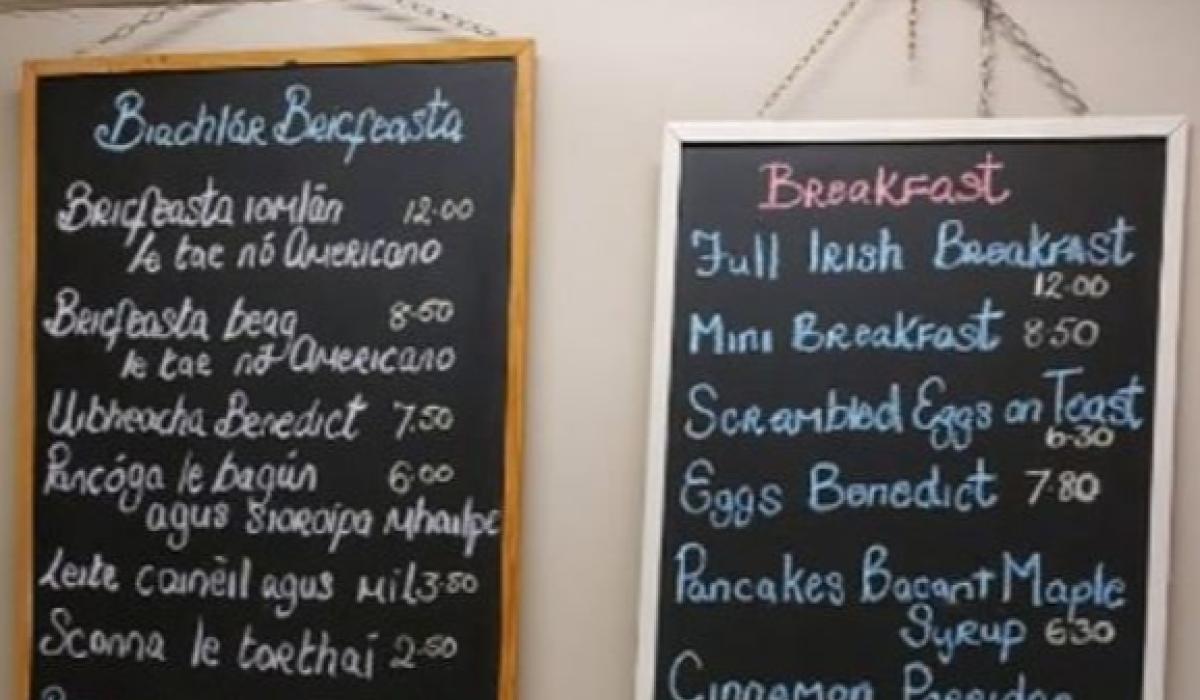 Biachlár Bricfeasta
Bricfeasta iomlán 12.00
le tae nó Americano
Bricfeasta beag 8.50
le tae nó Americano
Uibheacha Benedict 7.50
Pancóga le bagún 6.00
agus Síoróipa Mhailpe
Leite cainéil agus mil 3.50
Sconna le torthaí 2.50
Breakfast
Full Irish Breakfast
12.00
Mini Breakfast 8.50
Scrambled Eggs on Toast
6.30
Eggs Benedict 7.80
Pancakes Bacon + Maple
Syrup 6.30
Cinnamon Porridge